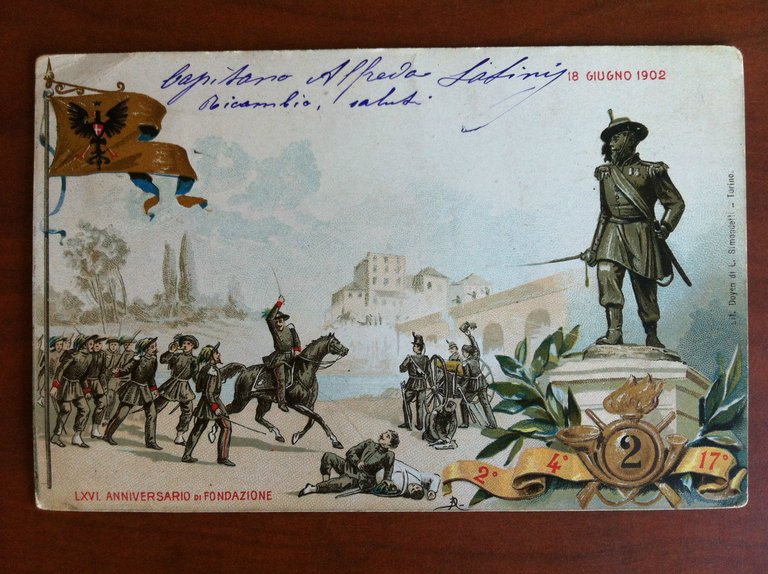 Capitano Alfredo
18 GIUGNO 1902
Ricambio, saluti
Doyen di L. Simondetti - Torino.
2
2° 4° 17°
LXVI. ANNIVERSARIO DI FONDAZIONE